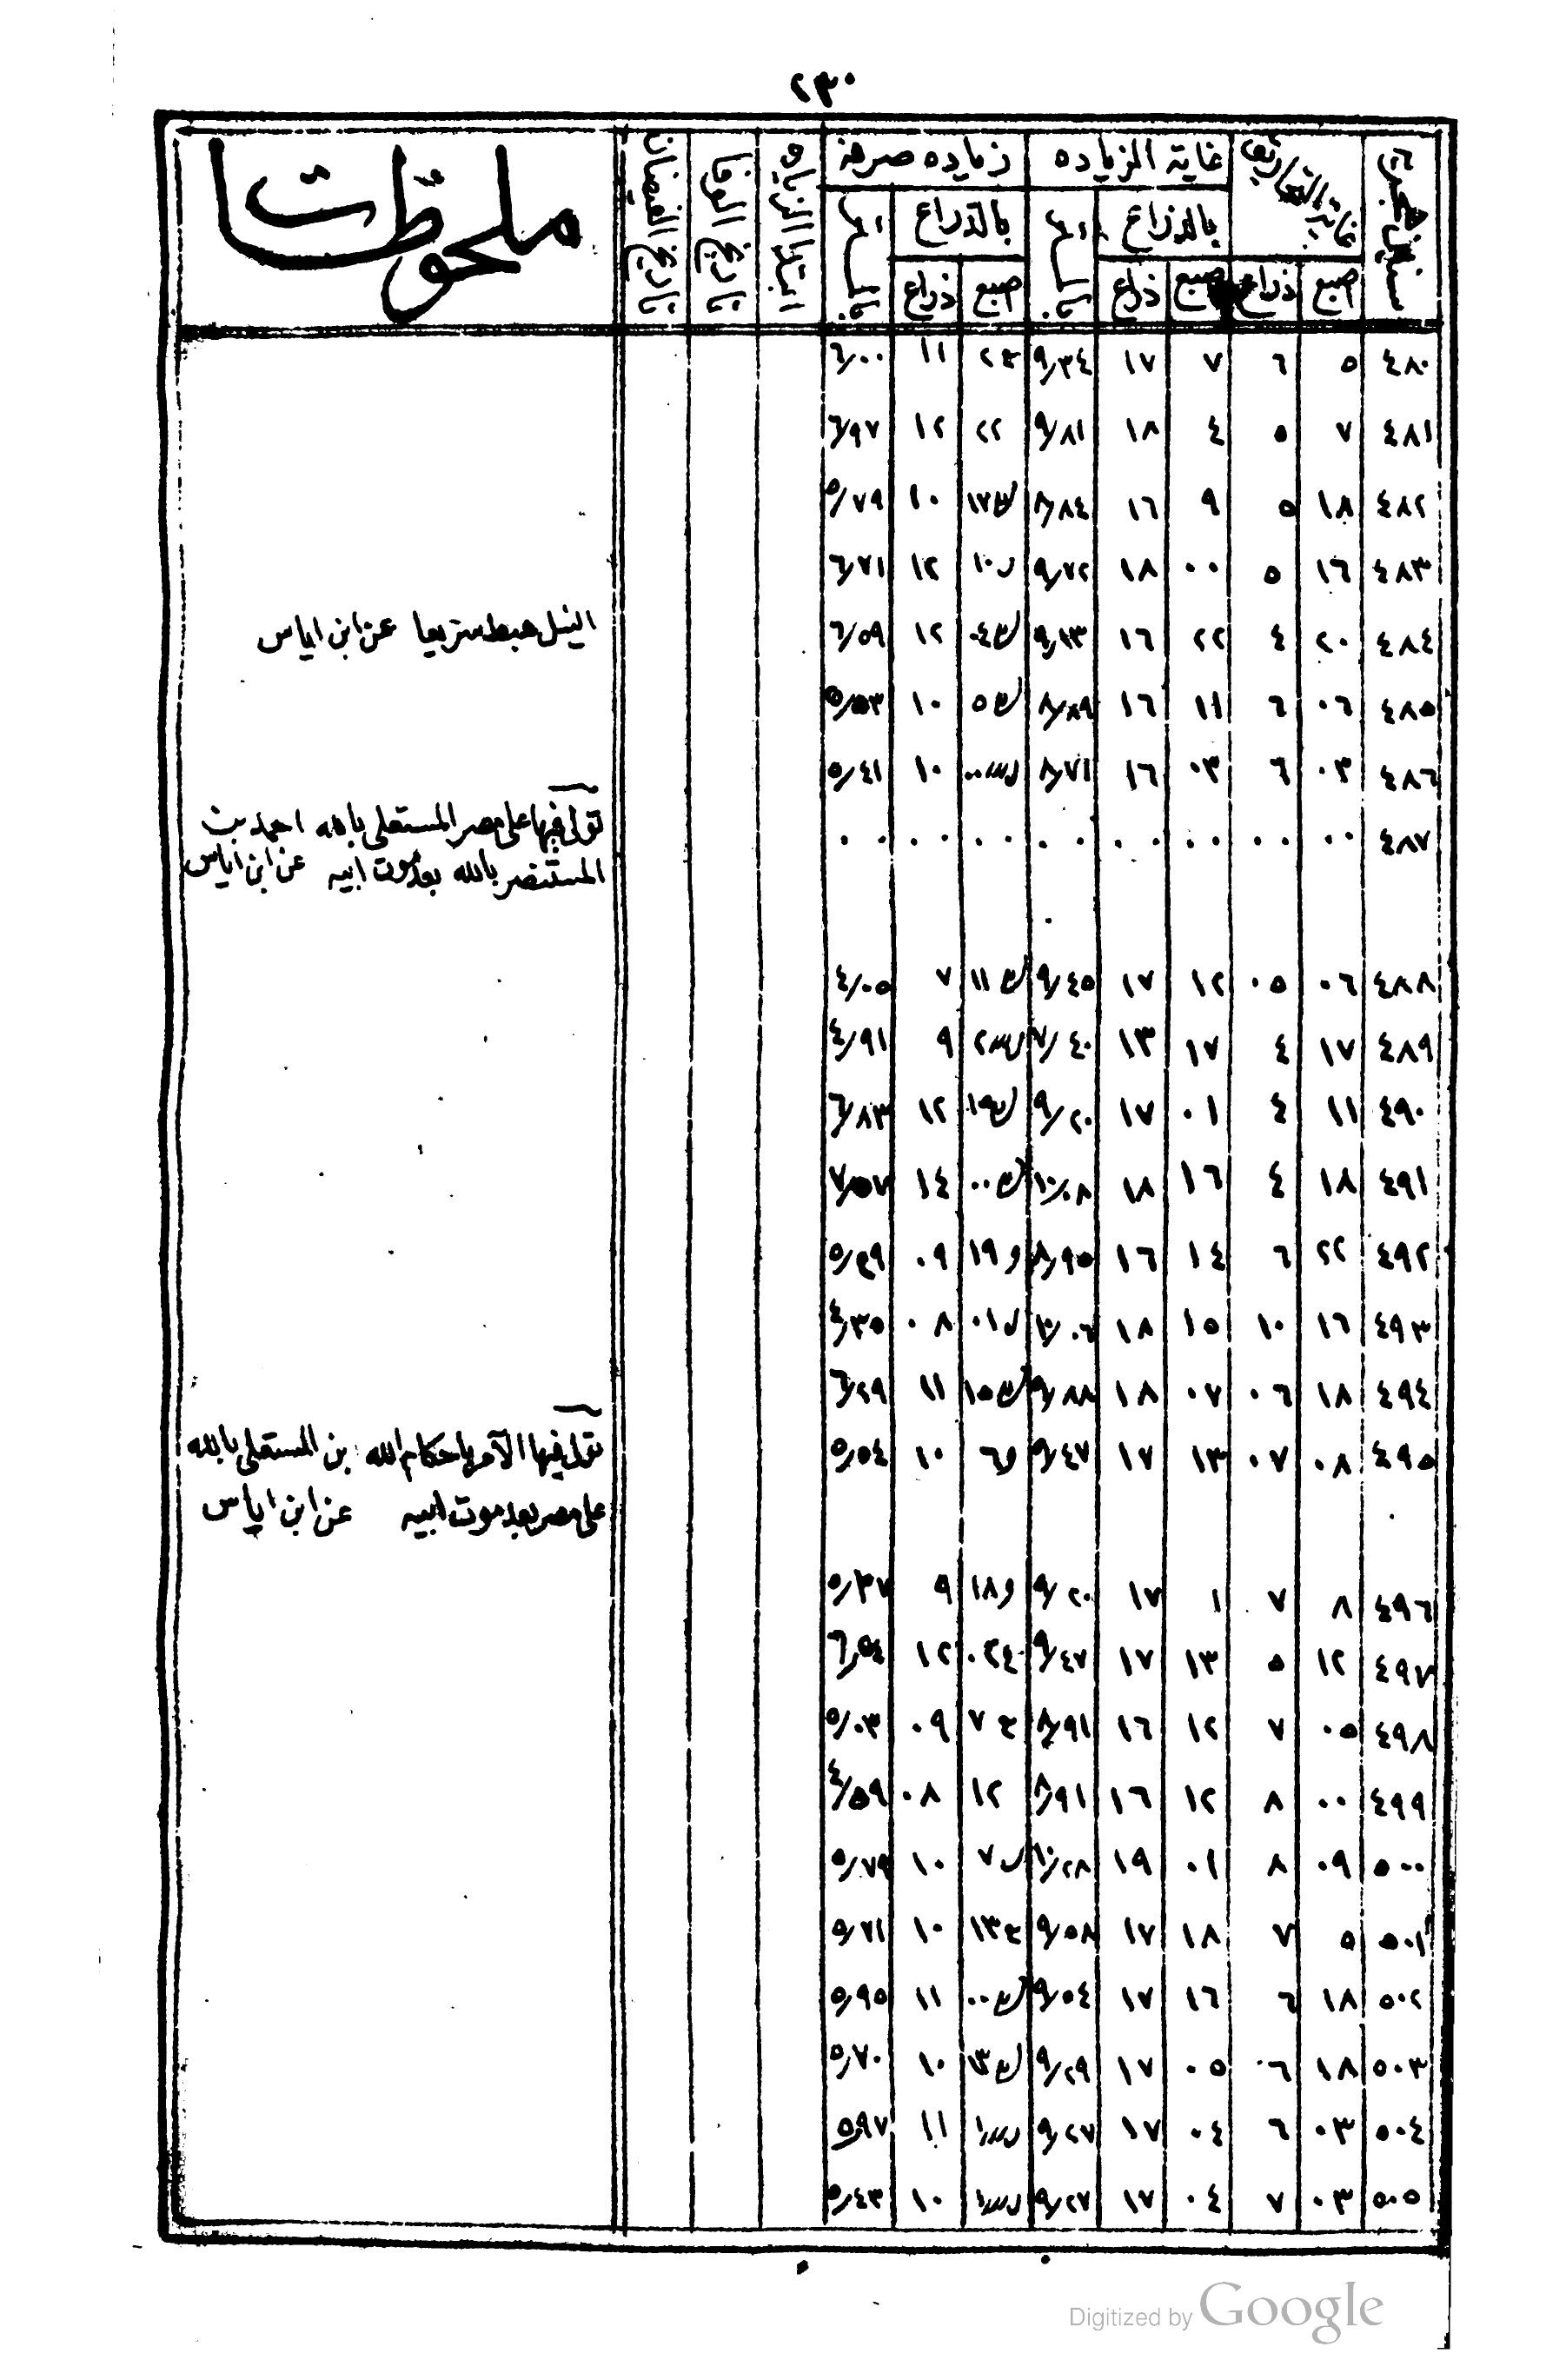 ٢٣٠
سنين هجرية | غاية التحاريق | غاية الزياده | زياده صرفه | ابتدا الزياده | تاريخ الوفا | تاريخ الفيضان | ملحوظات
بالذراع | بالامتار | بالذراع | بالامتار
اصبع | ذراع | اصبع | ذراع | اصبع | ذراع
٤٨٠ | ٥ | ٦ | ٧ | ١٧ | ٩/٣٤ | ١١ | ٦/٠٠
٤٨١ | ٧ | ٥ | ٤ | ١٨ | ٩/٨١ | ٢٢ | ١٢ | ٦/٩٧
٤٨٢ | ١٨ | ٥ | ٩ | ١٦ | ٨/٨٤ | ١٧ | ١٠ | ٥/٧٩
٤٨٣ | ١٦ | ٥ | ٠٠ | ١٨ | ٩/٧٢ | ١٠ | ١٢ | ٦/٧١
٤٨٤ | ٢٠ | ٤ | ٢٢ | ١٦ | ٩/١٣ | ٠٤ | ١٢ | ٦/٥٩ | النيل هبط سريعا عن ابن اياس
٤٨٥ | ٠٦ | ٦ | ١١ | ١٦ | ٨/٨٩ | ٥ | ١٠ | ٥/٥٣
٤٨٦ | ٠٣ | ٦ | ٠٣ | ١٦ | ٨/٧١ | ٠٠ | ١٠ | ٥/٤١
٤٨٧ | ٠٠ | ٠٠ | ٠٠ | ٠٠ | ٠٠ | ٠٠ | ٠٠ | ٠٠ | تولى فيها على مصر المستعلى بالله احمد بن
المستنصر بالله بعد موت ابيه عن ابن اياس
٤٨٨ | ٠٦ | ٠٥ | ١٢ | ١٧ | ٩/٤٥ | ١١ | ٧ | ٤/٠٥
٤٨٩ | ١٧ | ٤ | ١٧ | ١٣ | ٧/٤٠ | ٢ | ٩ | ٤/٩١
٤٩٠ | ١١ | ٤ | ٠١ | ١٧ | ٩/٢٠ | ١٩ | ١٢ | ٦/٨٣
٤٩١ | ١٨ | ٤ | ١٦ | ١٨ | ١٠/٠٨ | ٠٠ | ١٤ | ٧/٥٧
٤٩٢ | ٢٢ | ٦ | ١٤ | ١٦ | ٨/٩٥ | و ١٩ | ٠٩ | ٥/٤٩
٤٩٣ | ١٦ | ١٠ | ١٥ | ١٨ | ١٠/٠٦ | ٠١ | ٠٨ | ٤/٣٥
٤٩٤ | ١٨ | ٠٦ | ٠٧ | ١٨ | ٩/٨٨ | ١٥ | ١١ | ٦/٢٩
٤٩٥ | ٠٨ | ٠٧ | ١٣ | ١٧ | ٩/٤٧ | و ٦ | ١٠ | ٥/٥٤ | تولى فيها الآمر باحكام الله بن المستعلى بالله
على مصر بعد موت ابيه عن ابن اياس
٤٩٦ | ٨ | ٧ | ١ | ١٧ | ٩/٢٠ | و ١٨ | ٩ | ٥/٣٧
٤٩٧ | ١٢ | ٥ | ١٣ | ١٧ | ٩/٤٧ | ١٢ | ٦/٥٤
٤٩٨ | ٠٥ | ٧ | ١٢ | ١٦ | ٨/٩١ | ٧ | ٠٩ | ٥/٠٣
٤٩٩ | ٠٠ | ٨ | ١٢ | ١٦ | ٨/٩١ | ١٢ | ٠٨ | ٤/٥٩
٥٠٠ | ٠٩ | ٨ | ٠١ | ١٩ | ١٠/٢٨ | ٧ | ١٠ | ٥/٧٩
٥٠١ | ٥ | ٧ | ١٨ | ١٧ | ٩/٥٨ | ١٣ | ١٠ | ٥/٧١
٥٠٢ | ١٨ | ٦ | ١٦ | ١٧ | ٩/٥٤ | ٠٠ | ١١ | ٥/٩٥
٥٠٣ | ١٨ | ٠٦ | ٠٥ | ١٧ | ٩/٢٩ | ١٣ | ١٠ | ٥/٧٠
٥٠٤ | ٠٣ | ٦ | ٠٤ | ١٧ | ٩/٢٧ | ١ | ١١ | ٥/٩٧
٥٠٥ | ٠٣ | ٧ | ٠٤ | ١٧ | ٩/٢٧ | ١ | ١٠ | ٥/٤٣
Digitized by Google